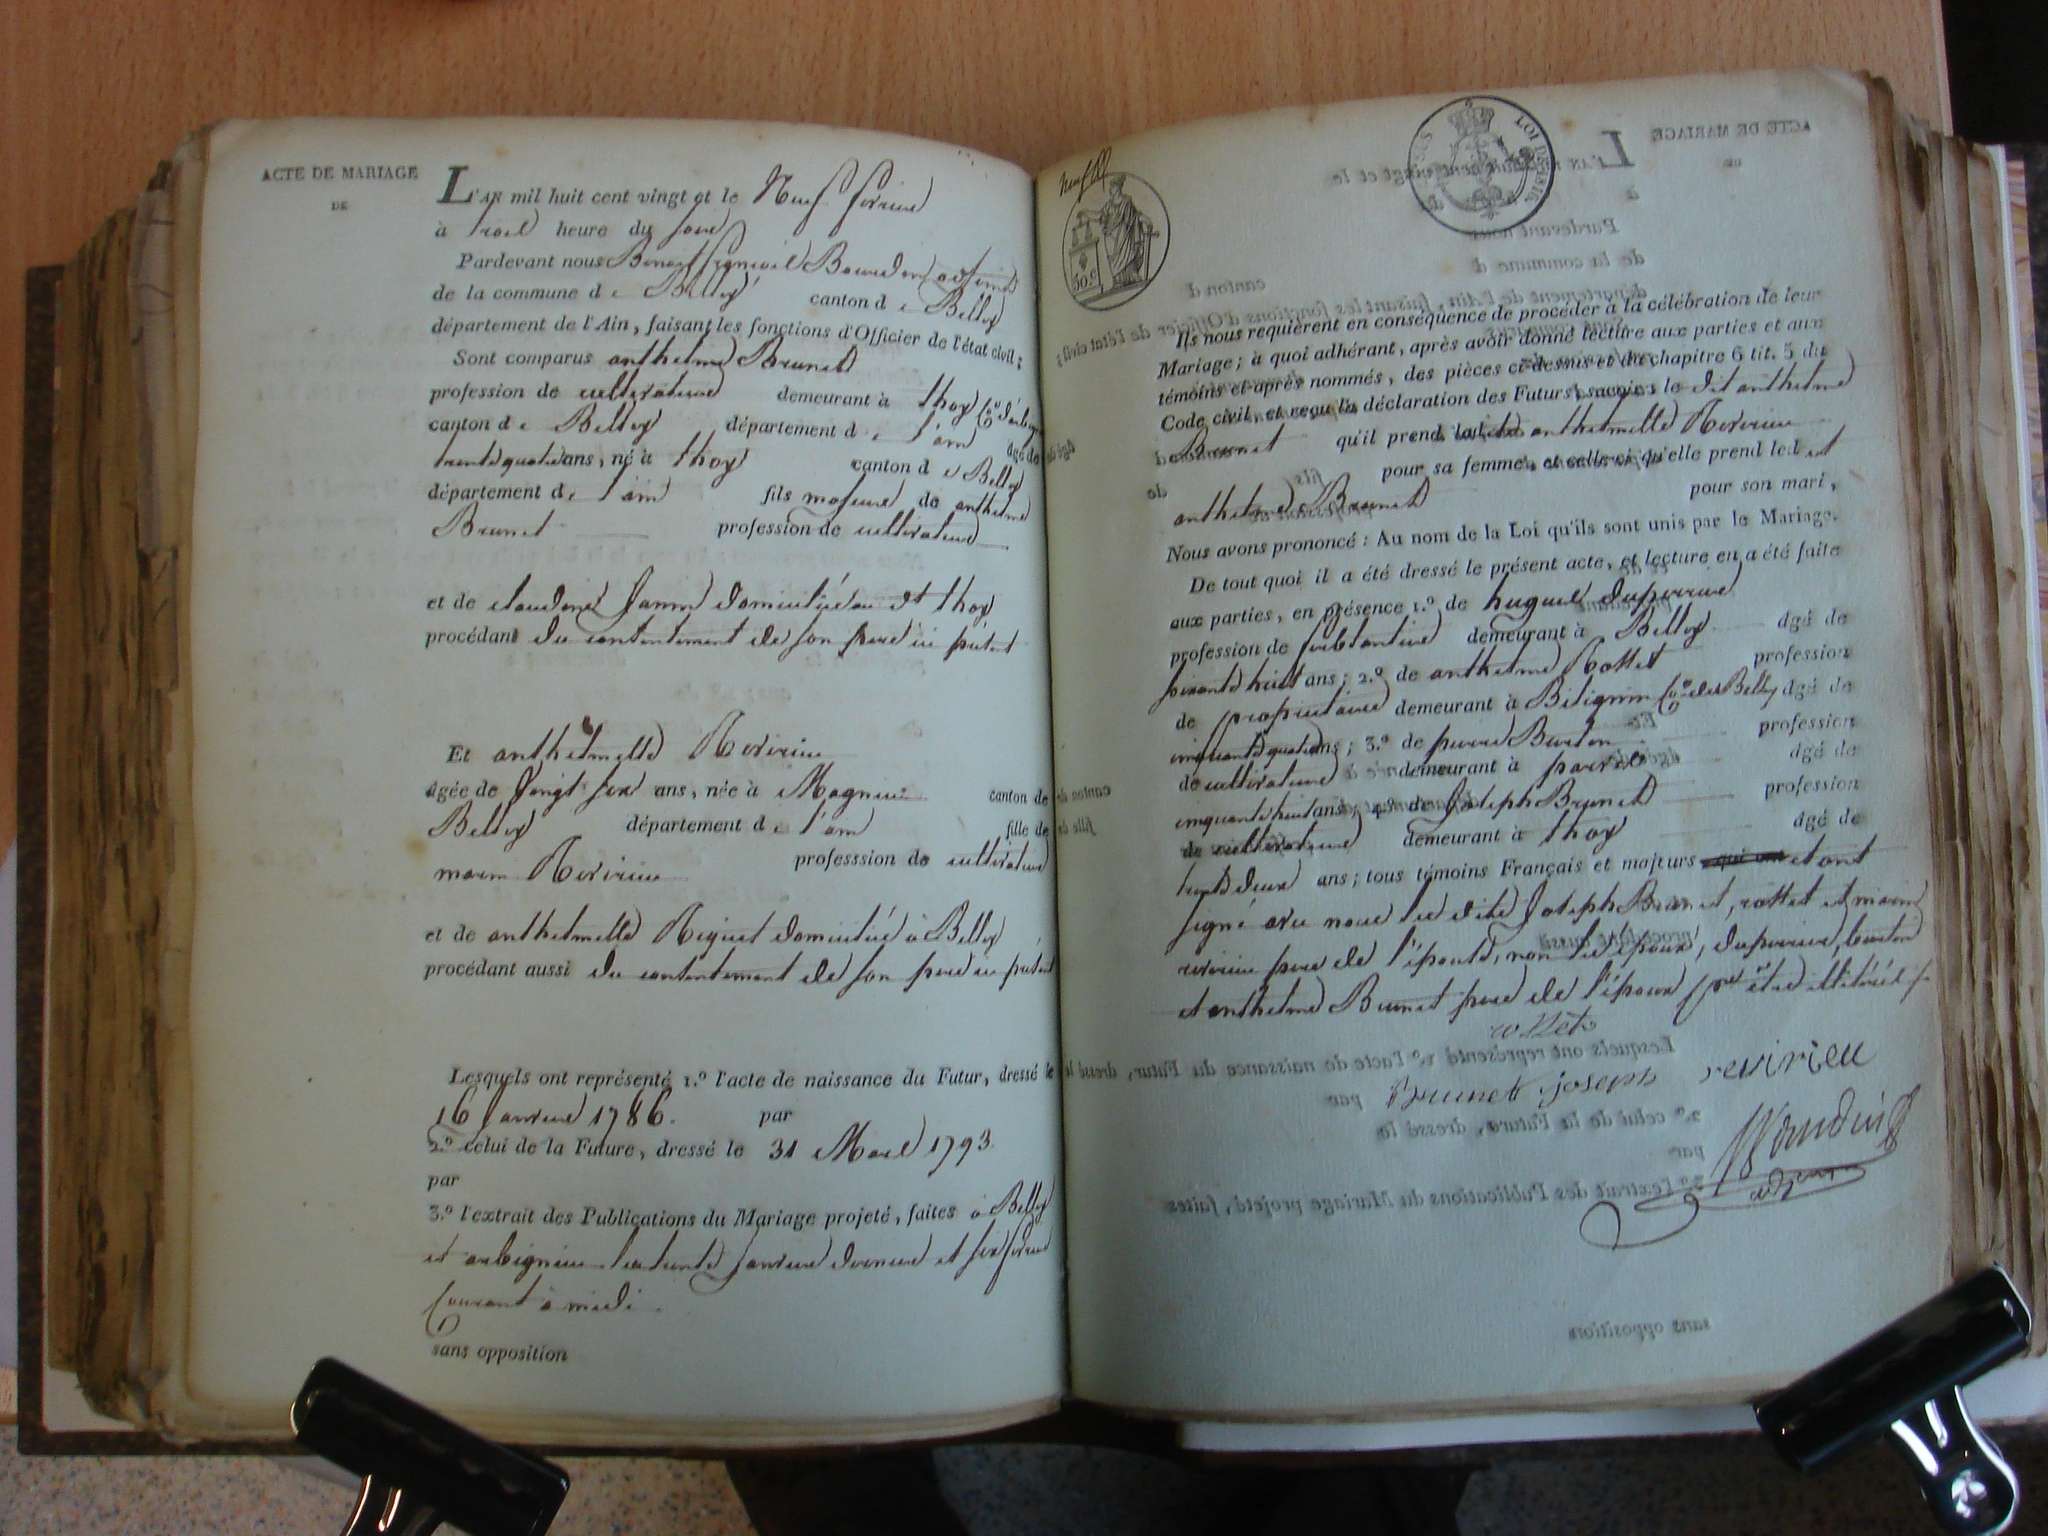 ACTE DE MARIAGE
DE
L'AN mil huit cent vingt et le Neuf fevrier
à trois heure du soir
Pardevant nous Benoit
de la commune de Belley canton de Belley
département de l'Ain, faisant les fonctions d'Officier de l'état civil;
Sont comparus anthelme Brunet
profession de cultivateur demeurant à thoy Cne d'arbignieu
canton de Belley département de l'ain âgé de
trente quatre ans, né à thoy canton de Belley
département de l'ain fils majeur de anthelme
Brunet profession de cultivateur
et de claudine Jamin domiciliés au dt thoy
procédant du contentement de son pere ici présent
Et anthelmette Revirieu
âgée de vingt six ans, née à Magnieu canton de
Belley département de l'ain fille de
marin Revirieu professsion de cultivateur
et de anthelmette Riquet domiciliés à Belley
procédant aussi du contentement de son pere ici présent
Lesquels ont représenté 1.º l'acte de naissance du Futur, dressé le
16 Janvier 1786. par
2.º celui de la Future, dressé le 31 Mars 1793.
par
3.º l'extrait des Publications du Mariage projeté, faites à Belley
et arbignieu les trente Janvier dernier et six fevrier
Courant à midi.
sans opposition
50c
Ils nous requièrent en conséquence de procéder à la célébration de leur
Mariage; à quoi adhérant, après avoir donné lecture aux parties et aux
témoins et après nommés, des pièces ci-dessus et du chapitre 6 tit. 5 du
Code civil, et reçu la déclaration des Futurs, savoir: le dit anthelme
Brunet qu'il prend la dite anthelmette Revirieu
pour sa femme, et celle-ci qu'elle prend le dit
anthelme Brunet pour son mari,
Nous avons prononcé: Au nom de la Loi qu'ils sont unis par le Mariage.
De tout quoi il a été dressé le présent acte, et lecture en a été faite
aux parties, en présence 1.º de hugues duperrier
profession de ferblantier demeurant à Belley âgé de
soixante huit ans; 2.º de anthelme Rottet profession
de propriétaire demeurant à Bilignin Cne de Belley âgé de
cinquante quatre ans; 3.º de pierre Burton profession
de cultivateur demeurant à parves âgé de
cinquante huit ans; 4.º de Joseph Brunet profession
de cultivateur demeurant à thoy âgé de
trente deux ans; tous témoins Français et majeurs et ont
signé avec nous les dits Joseph Brunet, rottet et marin
revirieu pere de l'épouse, non les époux, duperrier, burton
et anthelme Brunet pere de l'époux pour être illitérés
rottet
Brunet joseph revirieu